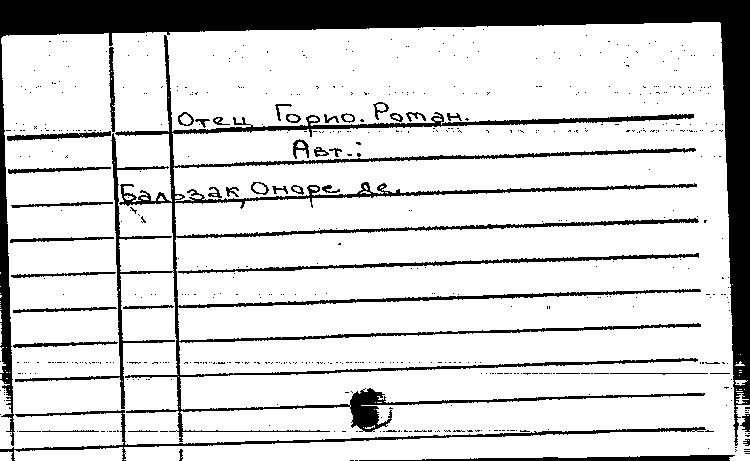 Отец Горио. Роман.
Авт.:
Бальзак, Оноре де.